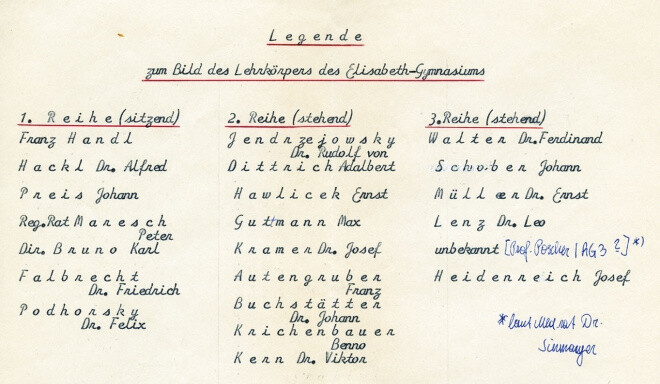 Legende
zum Bild des Lehrkörpers des Elisabeth-Gymnasiums
1. Reihe (sitzend)
Franz Handl
Hackl Dr. Alfred
Preis Johann
Reg.Rat Maresch
Peter
Dir. Bruno Karl
Falbrecht
Dr. Friedrich
Podhorsky
Dr. Felix
2. Reihe (stehend)
Jendrzejowsky
Dr. Rudolf von
Dittrich Adalbert
Hawlicek Ernst
Guttmann Max
Kramer Dr. Josef
Autengruber
Franz
Buchstätter
Dr. Johann
Krichenbauer
Benno
Kern Dr. Viktor
3. Reihe (stehend)
Walter Dr. Ferdinand
Schober Johann
Müller Dr. Ernst
Lenz Dr. Leo
unbekannt [Prof. Poscher / AG 3 ?] *)
Heidenreich Josef
* laut Med rat Dr.